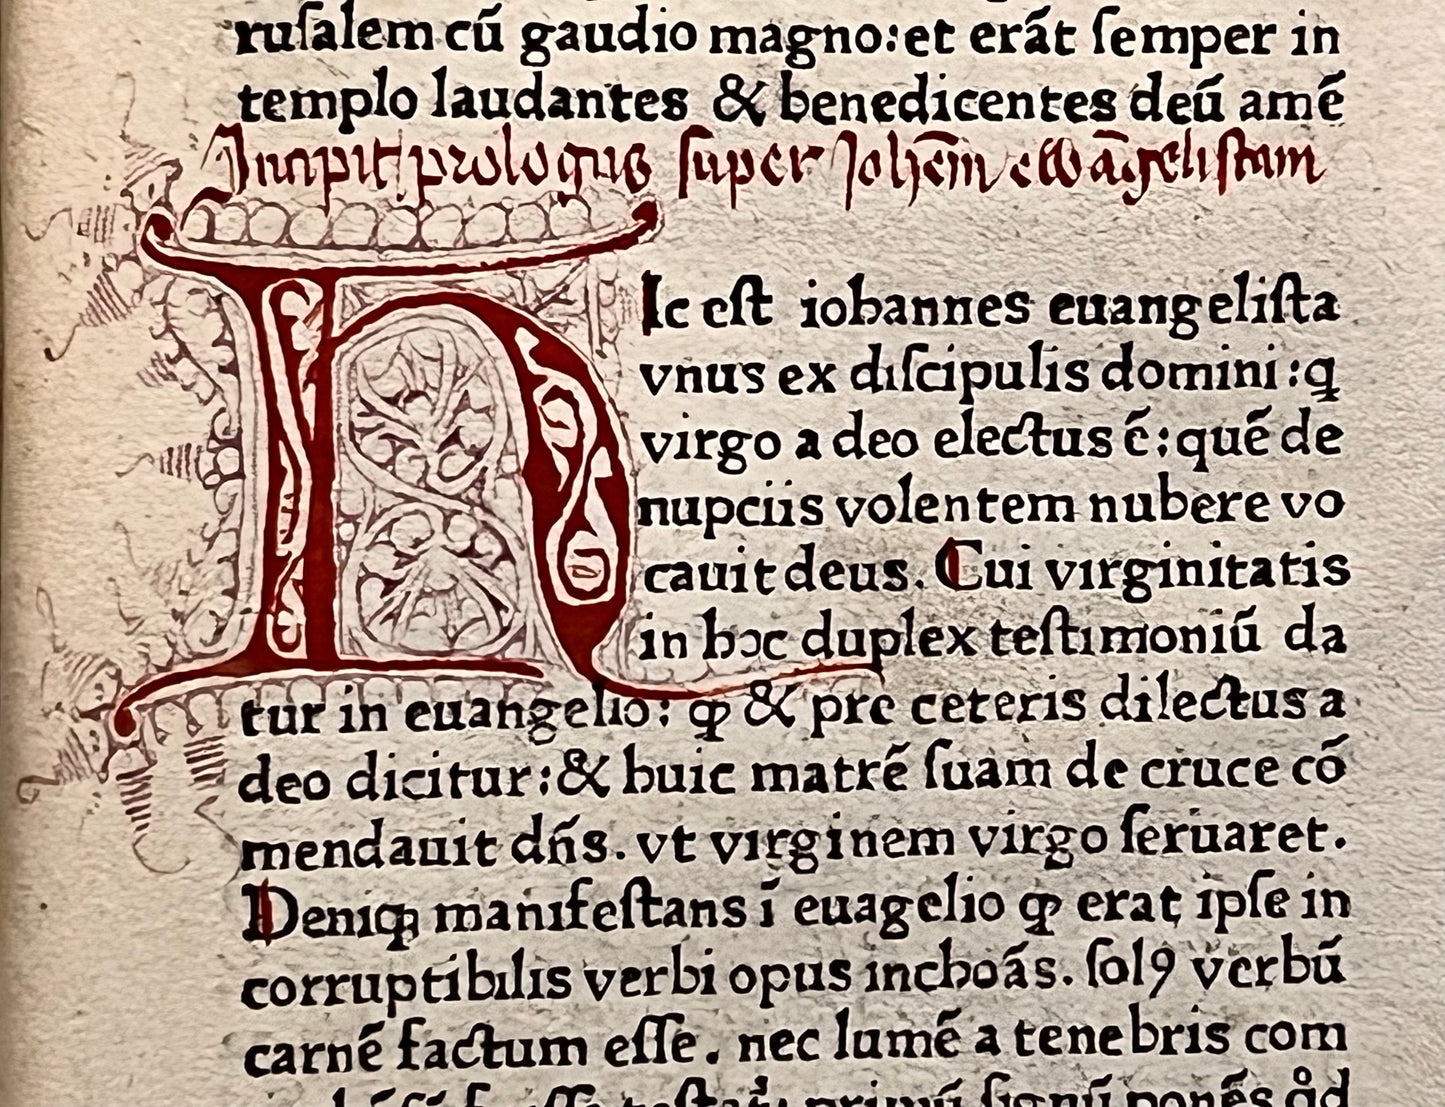 ruſalem cū gaudio magno: et erāt ſemper in
templo laudantes & benedicentes deū amē
Incipit prologus ſuper Joh̄em ewāgeliſtam
HIc eſt iohannes euangeliſta
vnus ex diſcipulis domini: q
virgo a deo electus ē: quē de
nupciis volentem nubere vo
cauit deus. Cui virginitatis
in hoc duplex teſtimoniū da
tur in euangelio: ꝙ & pre ceteris dilectus a
deo dicitur: & huic matrē ſuam de cruce cō
mendauit dn̄s. vt virginem virgo ſeruaret.
Deniqꝫ manifeſtans ī euāgelio ꝙ erat ipſe in
corruptibilis verbi opus inchoās. ſolꝰ verbū
carnē factum eſſe. nec lumē a tenebris com
primū ſignū ponēs